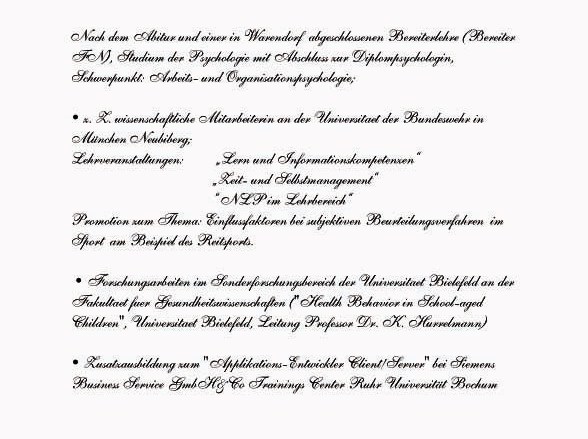 Nach dem Abitur und einer in Warendorf abgeschlossenen Bereiterlehre (Bereiter
FN), Studium der Psychologie mit Abschluss zur Diplompsychologin,
Schwerpunkt: Arbeits- und Organisationspsychologie;
• z. Z. wissenschaftliche Mitarbeiterin an der Universitaet der Bundeswehr in
München Neubiberg;
Lehrveranstaltungen: „Lern und Informationskompetenzen“
„Zeit- und Selbstmanagement“
“ NLP im Lehrbereich“
Promotion zum Thema: Einflussfaktoren bei subjektiven Beurteilungsverfahren im
Sport am Beispiel des Reitsports.
• Forschungsarbeiten im Sonderforschungsbereich der Universitaet Bielefeld an der
Fakultaet fuer Gesundheitswissenschaften ("Health Behavior in School-aged
Children", Universitaet Bielefeld, Leitung Professor Dr. K. Hurrelmann)
• Zusatzausbildung zum "Applikations-Entwickler Client/Server" bei Siemens
Business Service GmbH&Co Trainings Center Ruhr Universität Bochum